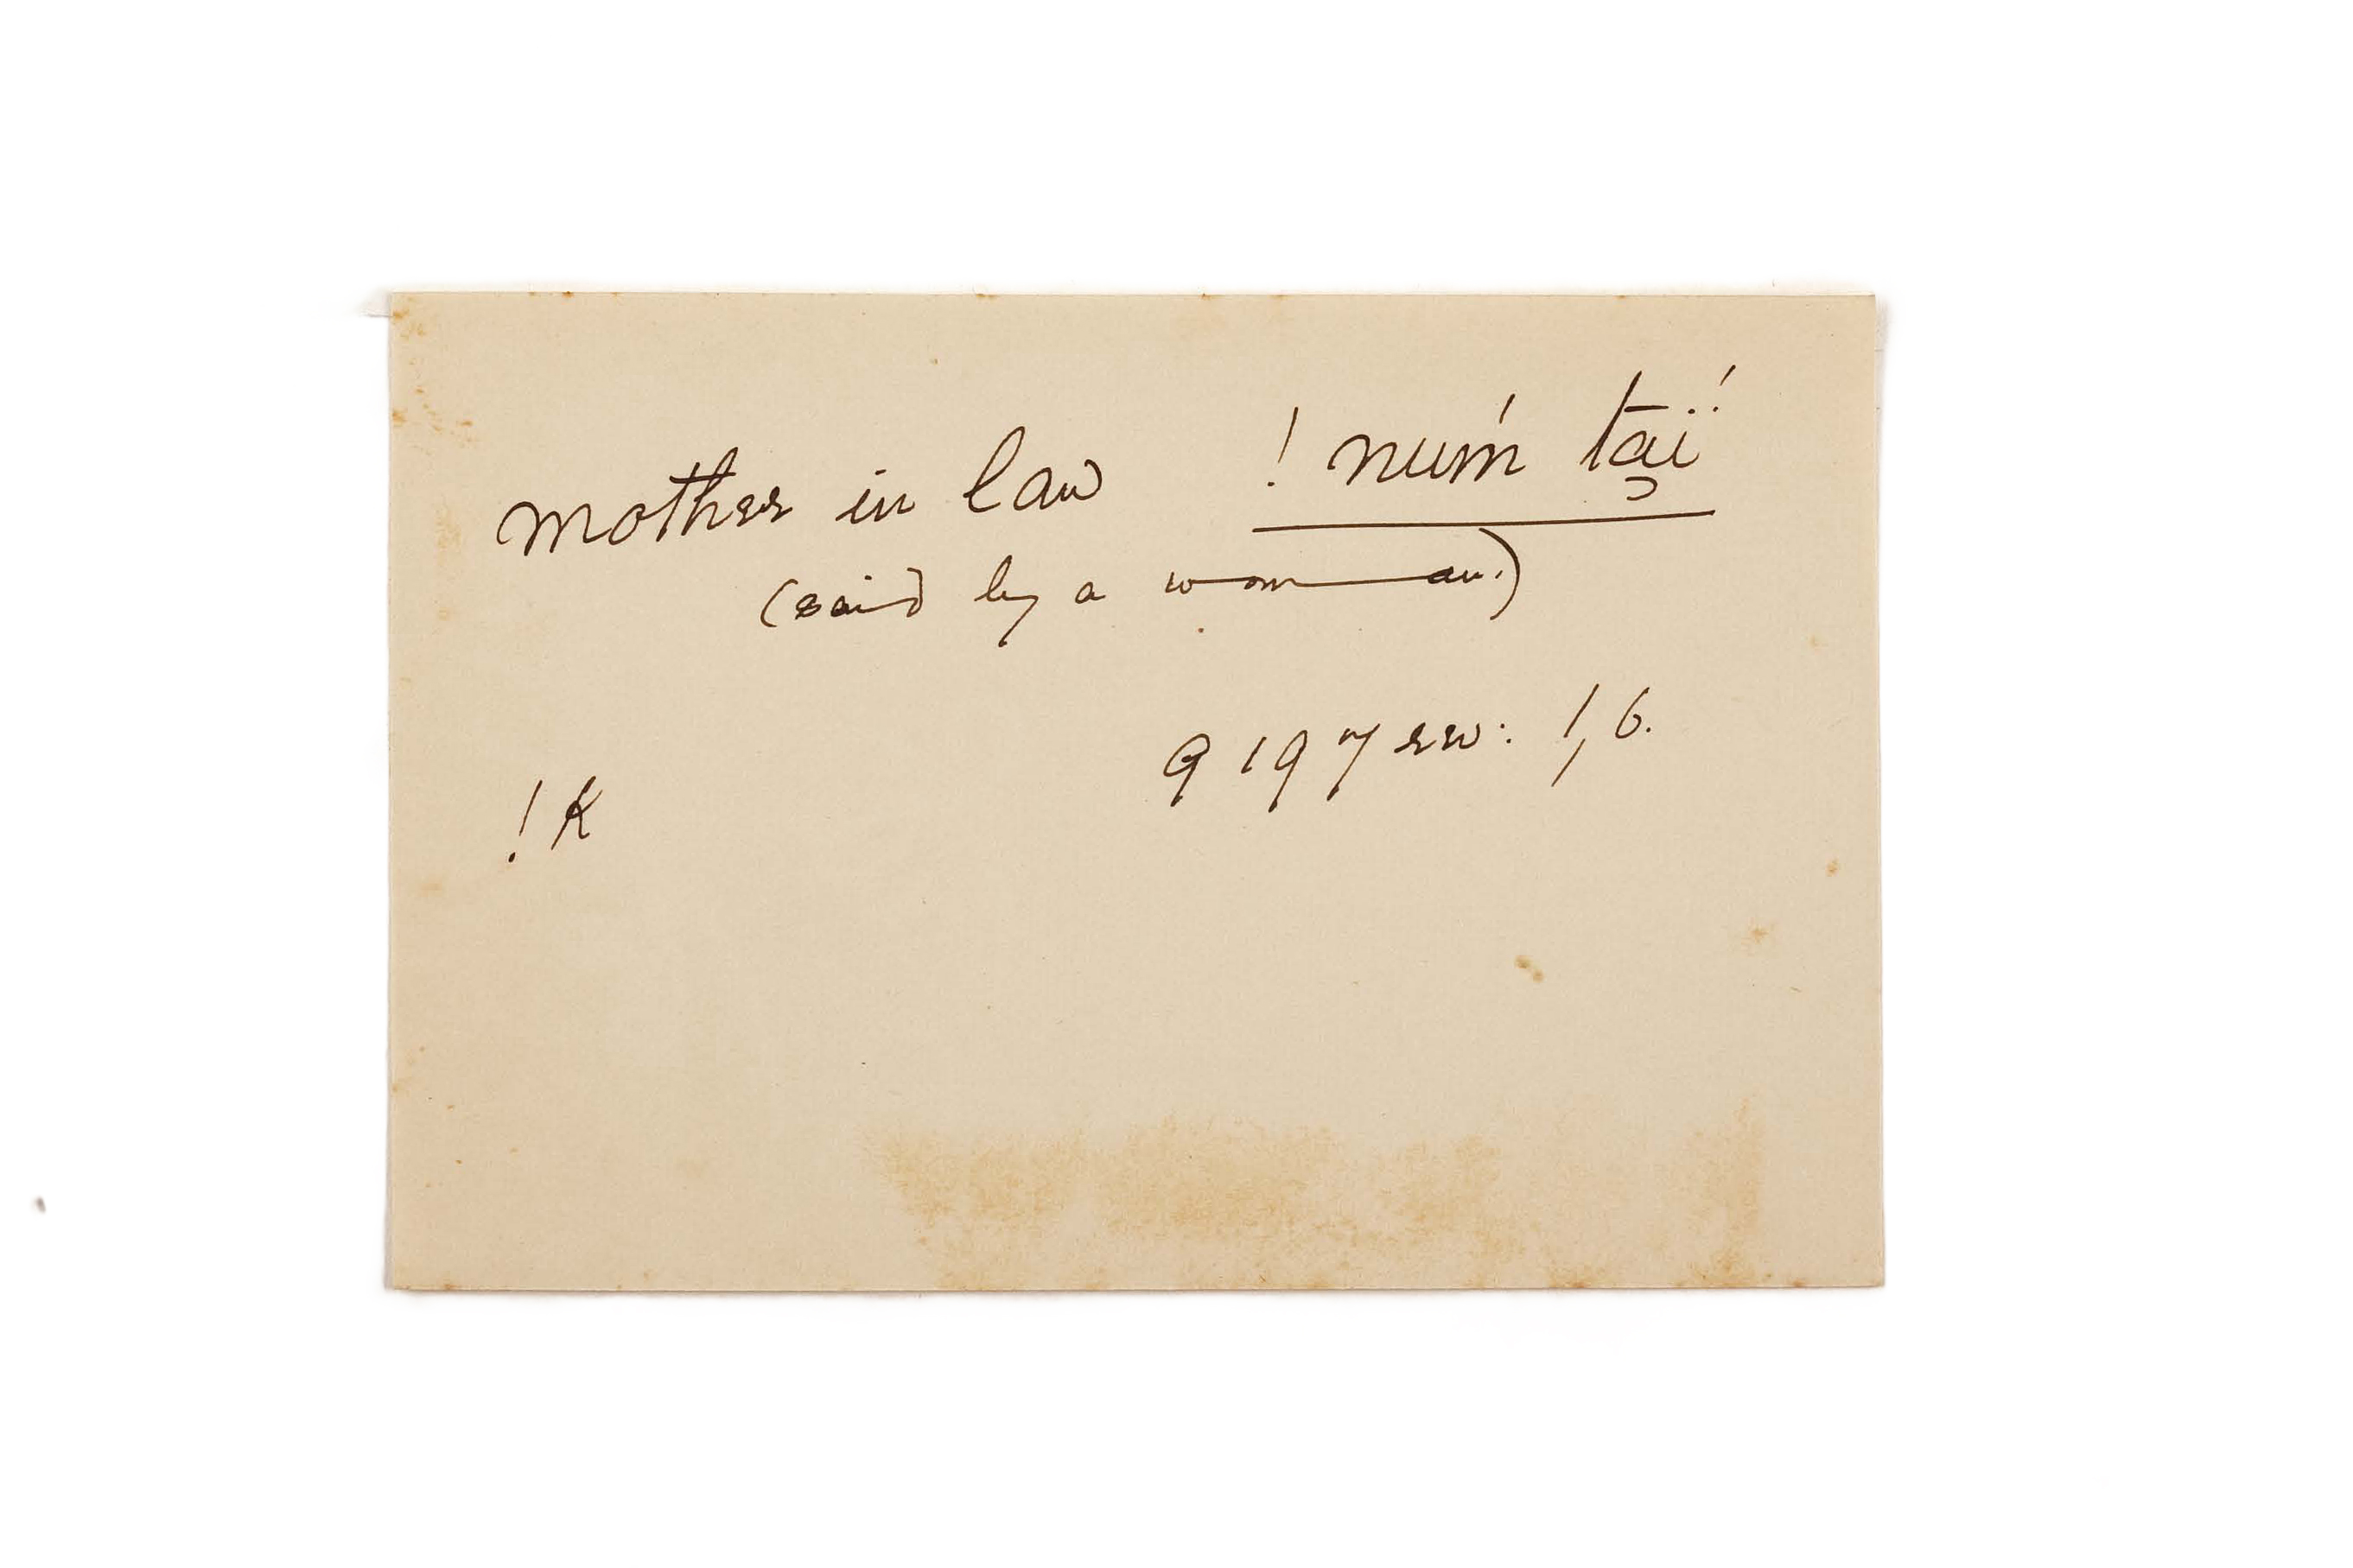 mother in law ! nuḿ ta̱̯ïˊ
(said by a woman.)
9197 rev: 1, 6.
! K